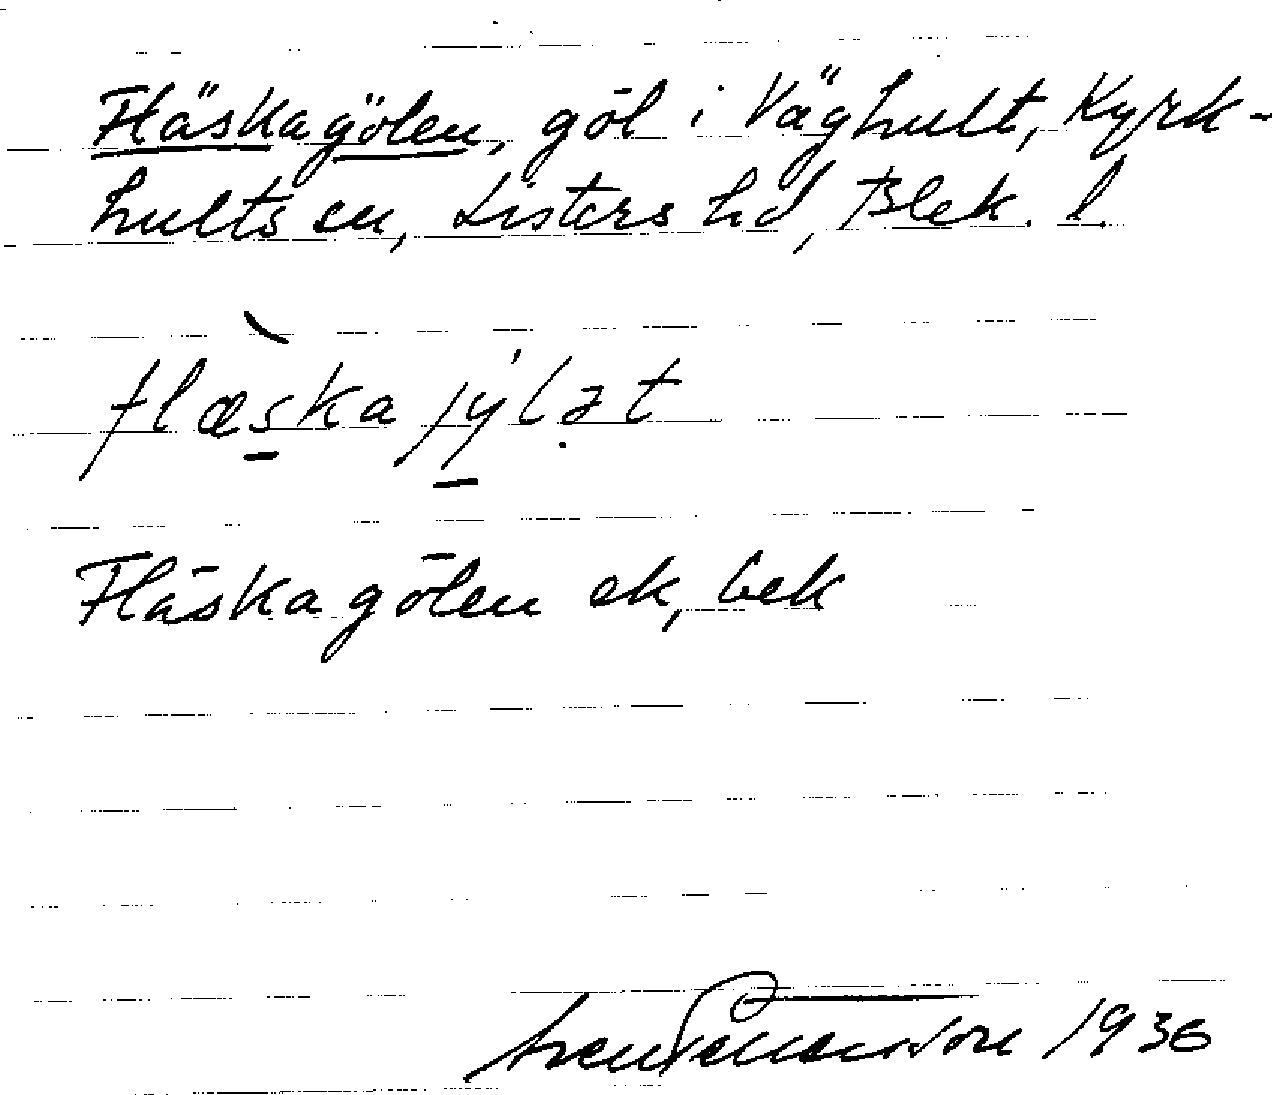 Fläskagölen, göl i Väghult, Kyrk-
hults sn, Listers hd, Blek. l.
flæska jýlət
Fläskagölen ek, bek
1936